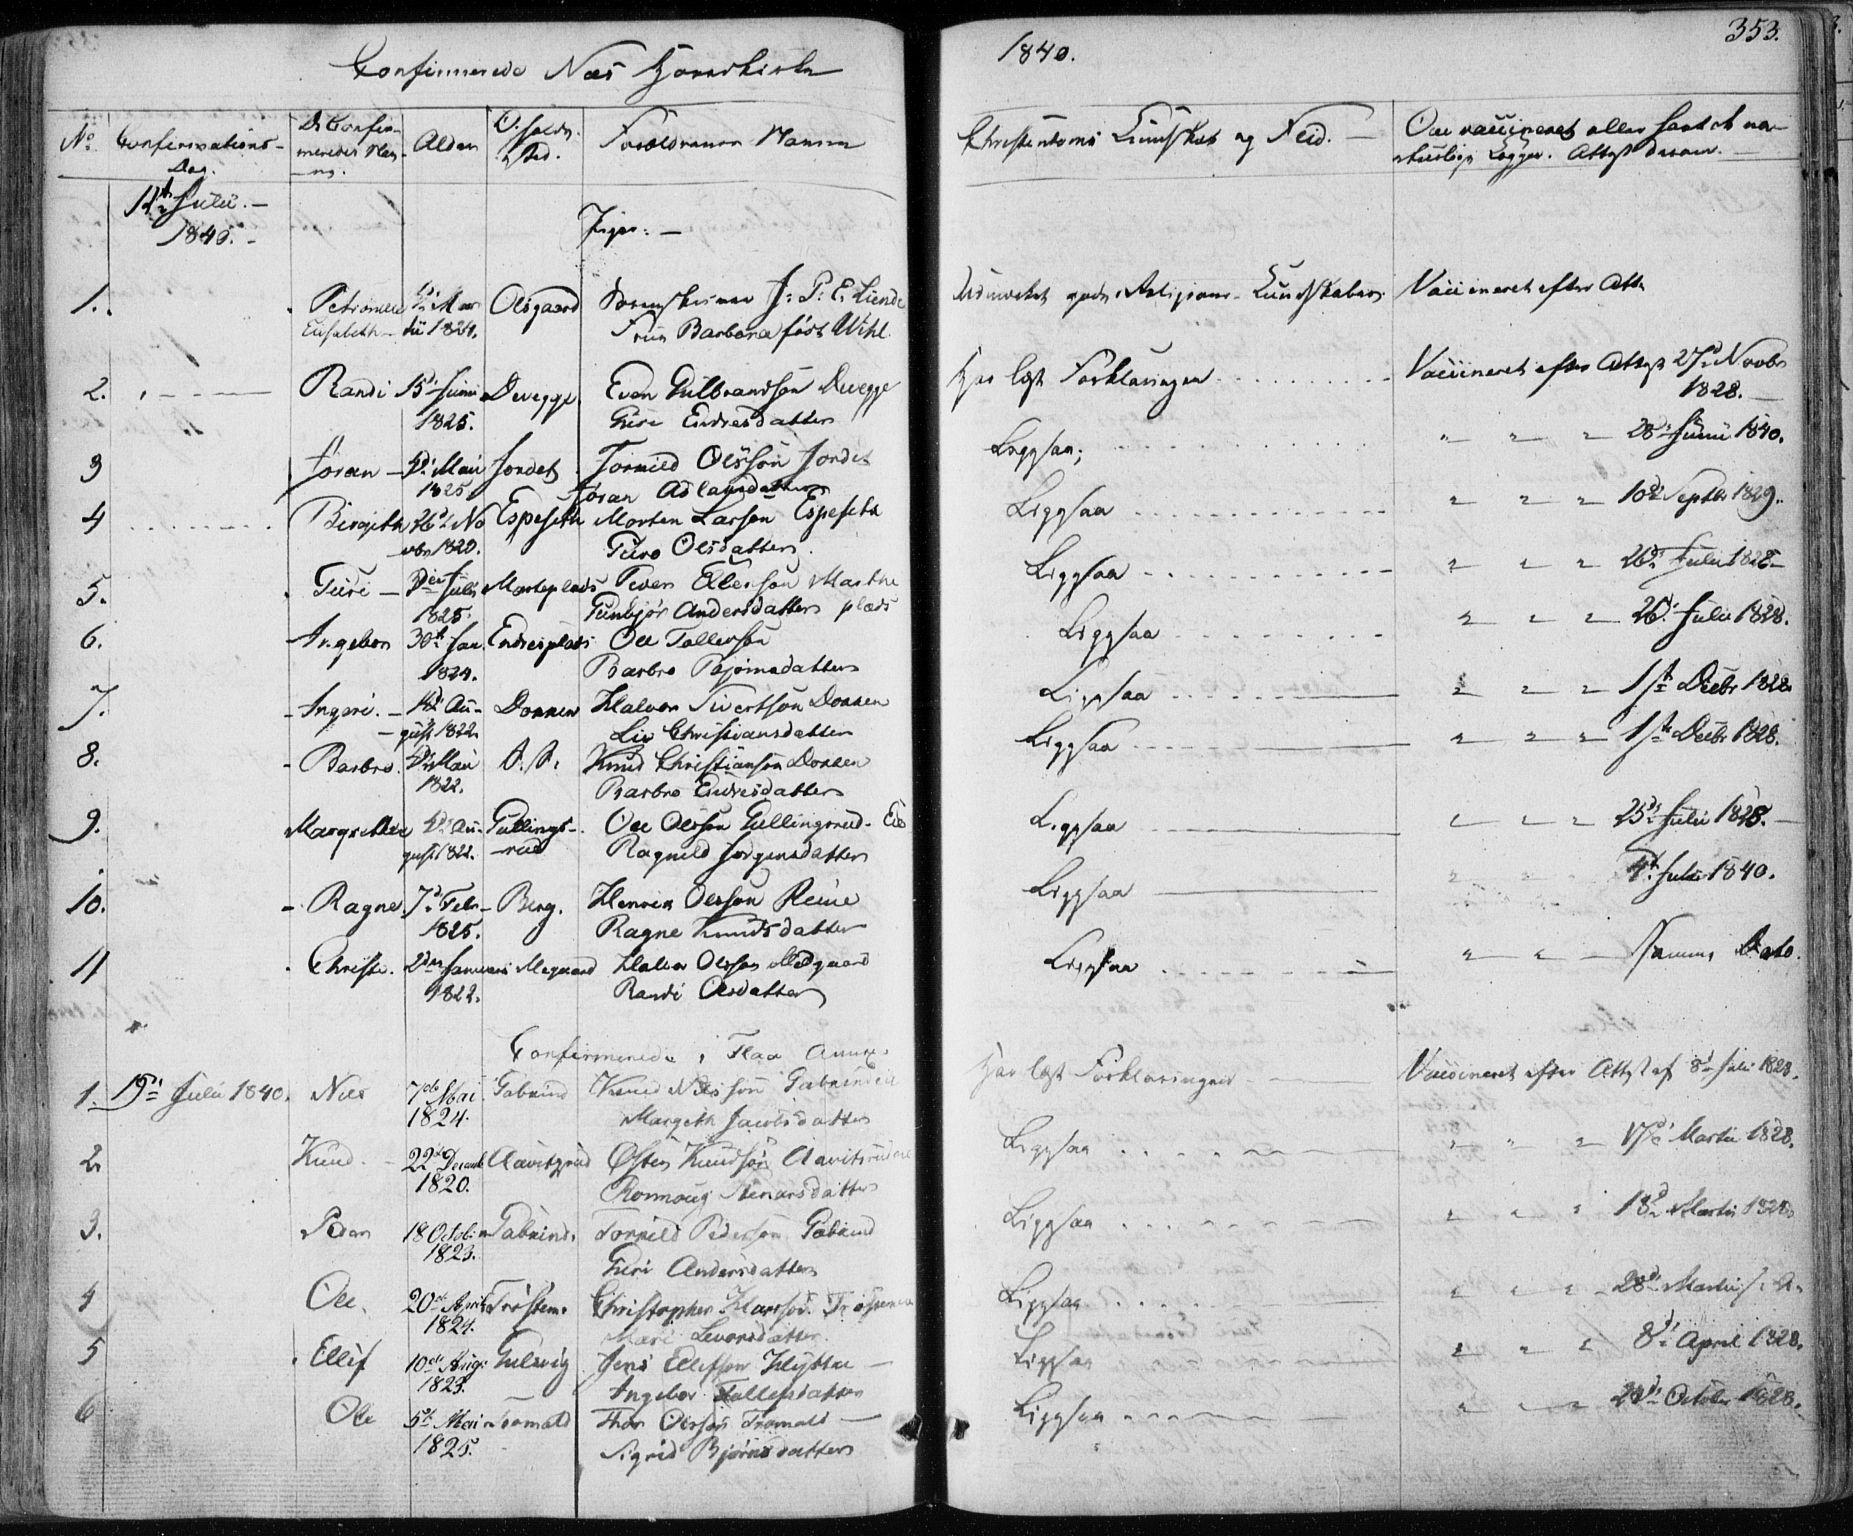 Confirmerede Næs Hovedkirke
1840.
353.
No. Confirmations- Dag.
De Confirmeredes Navn.
Alder
Opholdssted.
Forældrenes Navne
Christendoms Kundskab og Flid.
Om vaccineret eller havt de naturlige Kopper. Attest derom.
12te Julii. 1840.
Piger.
1. Petronelle Elisabeth
Olsgaard
J: P: E. Linde
Frue Barbara født Wihl
gode Religions-Kundskaber.
Vaccineret efter Att.
2. Randi 15de Junii 1825. Devegge
Even Gulbrandsøn Devegge
Guri Endresdatter
Har læst Forklaringen
Vaccineret efter Attest 27de Novbr 1828.
3 Jøran Maii 1825 Jordet
Tormod Olssøn Jordet
Jøran Aslaugsdatter
Ligesaa;
" " " 28de Junii 1840.
4 Birgithe 26de Novbr 1820. Espeseth
Morten Larsøn Espeseth
Guro Olsdatter
Ligesaa
" " " 10de Septbr 1829.
5. Guri Julii 1825. Martheplads
Iver Ellevsøn Martheplads
Gunbjør Andersdatter
Ligesaa
" " " 26de Julii 1828.
6. Ingebor 30te Jan. 1824. Endresplads
Ole Tollevsøn
Barbro Bjørnsdatter
Ligesaa
" " " 26de Julii 1828.
7. Ingeri. August 1822 Donnen
Halvor Sivertsøn Donnen
Liv Christiansdatter
Ligesaa
" " " 1ste Decbr 1828
8. Barbro. Maii 1822.
Knud Christiansøn Donnen
Barbro Endresdatter
Ligesaa
" " " 1ste Decbr 1828.
9. Margrethe August 1822. Gullingsrud
Ole Olssøn Gullingsrud
Ragnild Jørgensdatter
Ligesaa
" " " 25de Julii 1828.
10. Ragne. 7de Febr 1825. Berg.
Henrik Olssøn
Ragne Knudsdatter
Ligesaa
" " " Julii 1840.
11 Christi. Januari 1822.
Halvor Olssøn
Randi Olsdatter
Ligesaa
" " Samme Dato.
Confirmerede i Flaa Annex.
1. 19de Julii 1840. Nils 7de Mai 1824. Gabrud
Knud Nilssøn
Margith Jacobsdatter
Har læst Forklaringen
Vaccineret efter Attest af 8de Julii 1828.
2. Knud. 22de Decemb 1820.
Østen Knudsøn
Ronnoug Stenarsdatter
Ligesaa
" " " 17de Martii 1828.
3. Peder 18 Octob. 1823. Gabrud.
Tormod Pedersøn Gabrud
Guri Andersdatter
Ligesaa
" " " 18de Martii 1828
4 Ole. 20de April 1824. Trøstem.
Christopher
Mari
Ligesaa
" " " 28de Martii
5 Ellif 10de Aug: 1823. Gulsvig
Jens Ellifsøn
Ingebor Tollefsdatter
Ligesaa
" " " 8de April 1828.
6 Ole 5te Mai 1825. Tromald
Thor Olssøn Tromald
Sigrid Bjørnsdatter
Ligesaa
" " " October 1828.